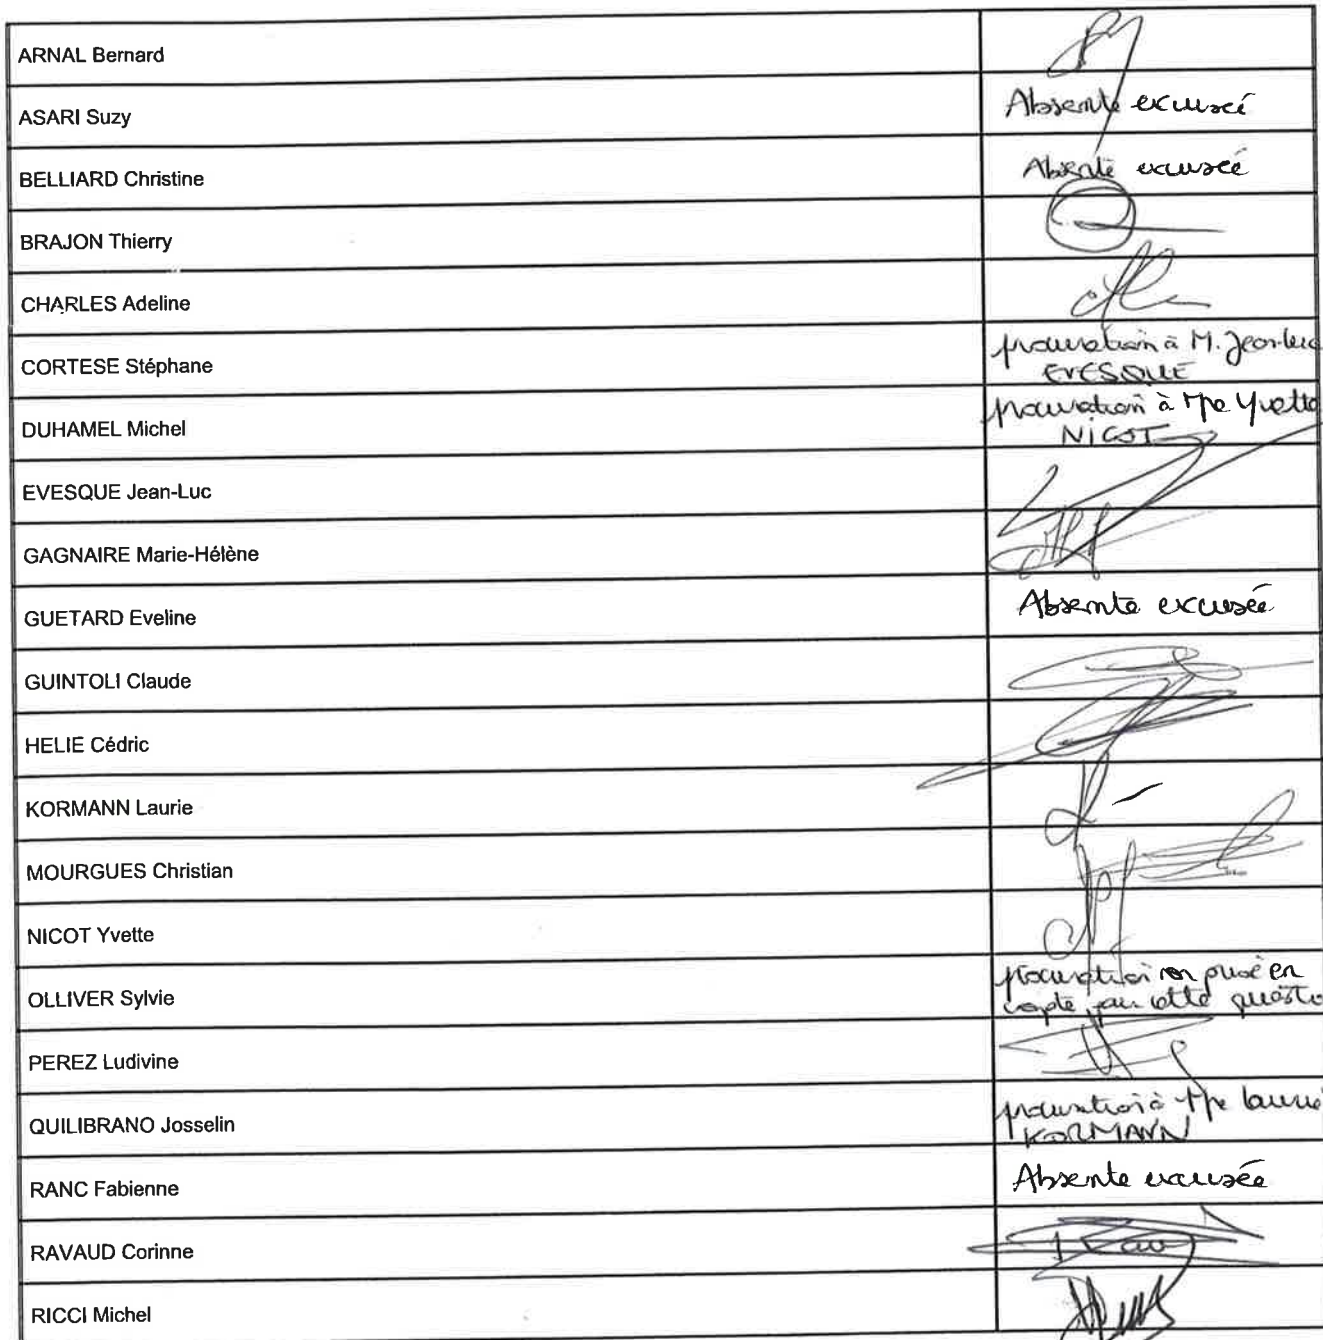 ARNAL Bernard
ASARI Suzy
Absente excusée
BELLIARD Christine
Absente excusée
BRAJON Thierry
CHARLES Adeline
CORTESE Stéphane
procuration à M. Jean-Luc
EVESQUE
DUHAMEL Michel
procuration à Mme Yvette
NICOT
EVESQUE Jean-Luc
GAGNAIRE Marie-Hélène
GUETARD Eveline
Absente excusée
GUINTOLI Claude
HELIE Cédric
KORMANN Laurie
MOURGUES Christian
NICOT Yvette
OLLIVER Sylvie
procuration non prise en
compte pour cette questio
PEREZ Ludivine
QUILIBRANO Josselin
procuration à Mme Laurie
KORMANN
RANC Fabienne
Absente excusée
RAVAUD Corinne
RICCI Michel